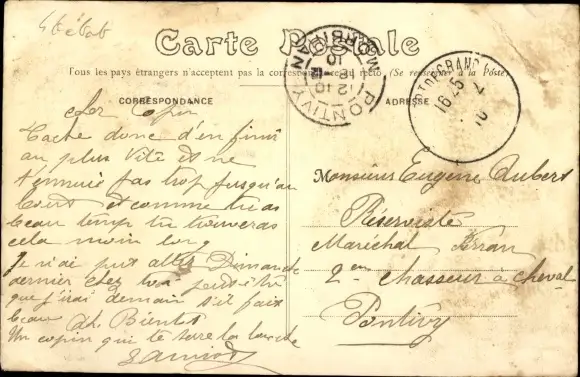 Carte Postale
Tous les pays étrangers n'acceptent pas la correspondance au recto (Se renseigner à la Poste)
CORRESPONDANCE
ADRESSE
PONTIVY
MORBIHAN
12-10
10
16-5
10
cher Copin
Tache donc d'en finir
au plus vite et ne
t'ennuie pas trop jusqu'au
bout et comme tu as
beau temp tu trouveras
cela moin long
Je n'ai put aller Dimanche
dernier chez toi peut-être
que j'irai demain s'il fait
beau
A Bientot
Un copin qui te serre la
Monsieur Eugène Aubert
Réserviste
Maréchal Ferran
2em chasseur à cheval
Pontivy